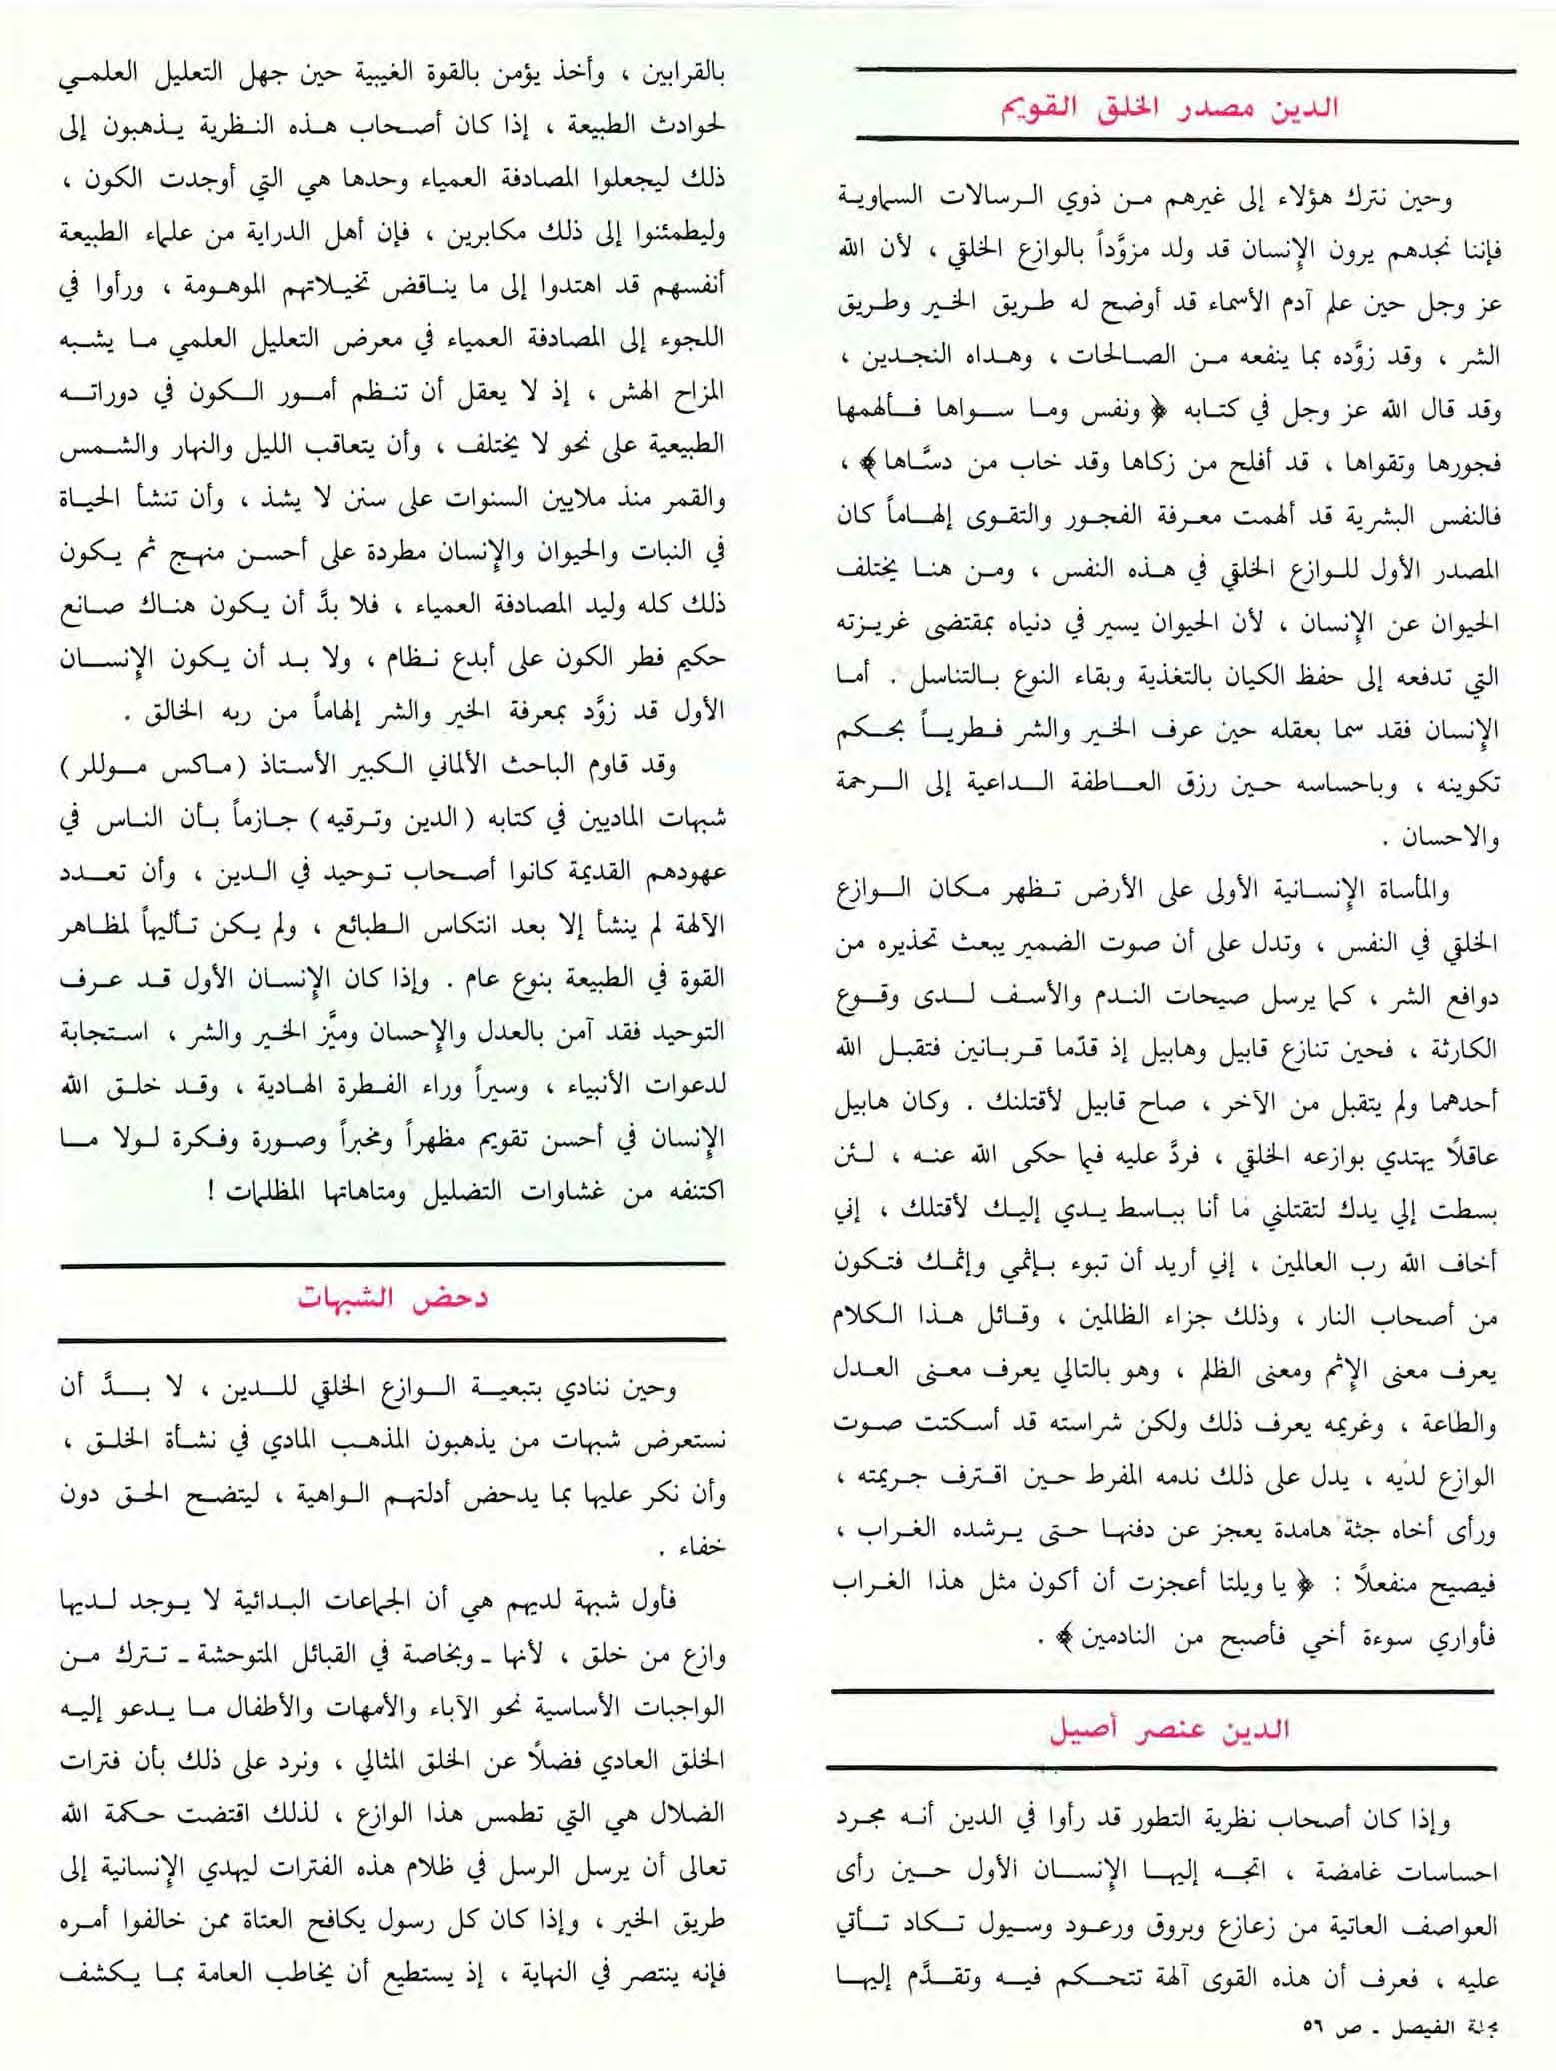 الدين مصدر الخلق القويم
وحين نترك هؤلاء إلى غيرهم من ذوي الرسالات السماوية
فإننا نجدهم يرون الإنسان قد ولد مزوَّداً بالوازع الخلقي ، لأن الله
عز وجل حين علم آدم الأسماء قد أوضح له طريق الخير وطريق
الشر ، وقد زوَّده بما ينفعه من الصالحات ، وهداه النجدين ،
وقد قال الله عز وجل في كتابه ﴿ ونفس وما سواها فألهمها
فجورها وتقواها ، قد أفلح من زكاها وقد خاب من دسَّاها﴾ ،
فالنفس البشرية قد ألهمت معرفة الفجور والتقوى إلهاماً كان
المصدر الأول للوازع الخلقي في هذه النفس ، ومن هنا يختلف
الحيوان عن الإنسان ، لأن الحيوان يسير في دنياه بمقتضى غريزته
التي تدفعه إلى حفظ الكيان بالتغذية وبقاء النوع بالتناسل . أما
الإنسان فقد سما بعقله حين عرف الخير والشر فطرياً بحكم
تكوينه ، وباحساسه حين رزق العاطفة الداعية إلى الرحمة
والاحسان .
والمأساة الإنسانية الأولى على الأرض تظهر مكان الوازع
الخلقي في النفس ، وتدل على أن صوت الضمير يبعث تحذيره من
دوافع الشر ، كما يرسل صيحات الندم والأسف لدى وقوع
الكارثة ، فحين تنازع قابيل وهابيل إذ قدّما قربانين فتقبل الله
أحدهما ولم يتقبل من الآخر ، صاح قابيل لأقتلنك . وكان هابيل
عاقلاً يهتدي بوازعه الخلقي ، فردَّ عليه فيما حكى الله عنه ، لئن
بسطت إلي يدك لتقتلني ما أنا بباسط يدي إليك لأقتلك ، إني
أخاف الله رب العالمين ، إني أريد أن تبوء بإثمي وإثمك فتكون
من أصحاب النار ، وذلك جزاء الظالمين ، وقائل هذا الكلام
يعرف معنى الإثم ومعنى الظلم ، وهو بالتالي يعرف معنى العدل
والطاعة ، وغريمه يعرف ذلك ولكن شراسته قد أسكتت صوت
الوازع لديه ، يدل على ذلك ندمه المفرط حين اقترف جريمته ،
ورأى أخاه جثة هامدة يعجز عن دفنها حتى يرشده الغراب ،
فيصيح منفعلاً : ﴿ يا ويلتا أعجزت أن أكون مثل هذا الغراب
فأواري سوءة أخي فأصبح من النادمين﴾ .
الدين عنصر أصيل
وإذا كان أصحاب نظرية التطور قد رأوا في الدين أنه مجرد
احساسات غامضة ، اتجه إليها الإنسان الأول حين رأى
العواصف العاتية من زعازع وبروق ورعود وسيول تكاد تأتي
عليه ، فعرف أن هذه القوى آلهة تتحكم فيه وتقدَّم إليها
مجلة الفيصل - ص ٥٦
بالقرابين ، وأخذ يؤمن بالقوة الغيبية حين جهل التعليل العلمي
لحوادث الطبيعة ، إذا كان أصحاب هذه النظرية يذهبون إلى
ذلك ليجعلوا المصادفة العمياء وحدها هي التي أوجدت الكون ،
وليطمئنوا إلى ذلك مكابرين ، فإن أهل الدراية من علماء الطبيعة
أنفسهم قد اهتدوا إلى ما يناقض تخيلاتهم الموهومة ، ورأوا في
اللجوء إلى المصادفة العمياء في معرض التعليل العلمي ما يشبه
المزاح الهش ، إذ لا يعقل أن تنظم أمور الكون في دوراته
الطبيعية على نحو لا يختلف ، وأن يتعاقب الليل والنهار والشمس
والقمر منذ ملايين السنوات على سنن لا يشذ ، وأن تنشأ الحياة
في النبات والحيوان والإنسان مطردة على أحسن منهج ثم يكون
ذلك كله وليد المصادفة العمياء ، فلا بدَّ أن يكون هناك صانع
حكيم فطر الكون على أبدع نظام ، ولا بد أن يكون الإنسان
الأول قد زوَّد بمعرفة الخير والشر إلهاماً من ربه الخالق .
وقد قاوم الباحث الألماني الكبير الأستاذ (ماكس موللر)
شبهات الماديين في كتابه (الدين وترقيه) جازماً بأن الناس في
عهودهم القديمة كانوا أصحاب توحيد في الدين ، وأن تعدد
الآلهة لم ينشأ إلا بعد انتكاس الطبائع ، ولم يكن تأليهاً لمظاهر
القوة في الطبيعة بنوع عام . وإذا كان الإنسان الأول قد عرف
التوحيد فقد آمن بالعدل والإحسان وميَّز الخير والشر ، استجابة
لدعوات الأنبياء ، وسيراً وراء الفطرة الهادية ، وقد خلق الله
الإنسان في أحسن تقويم مظهراً ومخبراً وصورة وفكرة لولا ما
اكتنفه من غشاوات التضليل ومتاهاتها المظلمات !
دحض الشبهات
وحين ننادي بتبعية الوازع الخلقي للدين ، لا بدَّ أن
نستعرض شبهات من يذهبون المذهب المادي في نشأة الخلق ،
وأن نكر عليها بما يدحض أدلتهم الواهية ، ليتضح الحق دون
خفاء .
فأول شبهة لديهم هي أن الجماعات البدائية لا يوجد لديها
وازع من خلق ، لأنها - وبخاصة في القبائل المتوحشة - تترك من
الواجبات الأساسية نحو الآباء والأمهات والأطفال ما يدعو إليه
الخلق العادي فضلاً عن الخلق المثالي ، ونرد على ذلك بأن فترات
الضلال هي التي تطمس هذا الوازع ، لذلك اقتضت حكمة الله
تعالى أن يرسل الرسل في ظلام هذه الفترات ليهدي الإنسانية إلى
طريق الخير ، وإذا كان كل رسول يكافح العتاة ممن خالفوا أمره
فإنه ينتصر في النهاية ، إذ يستطيع أن يخاطب العامة بما يكشف